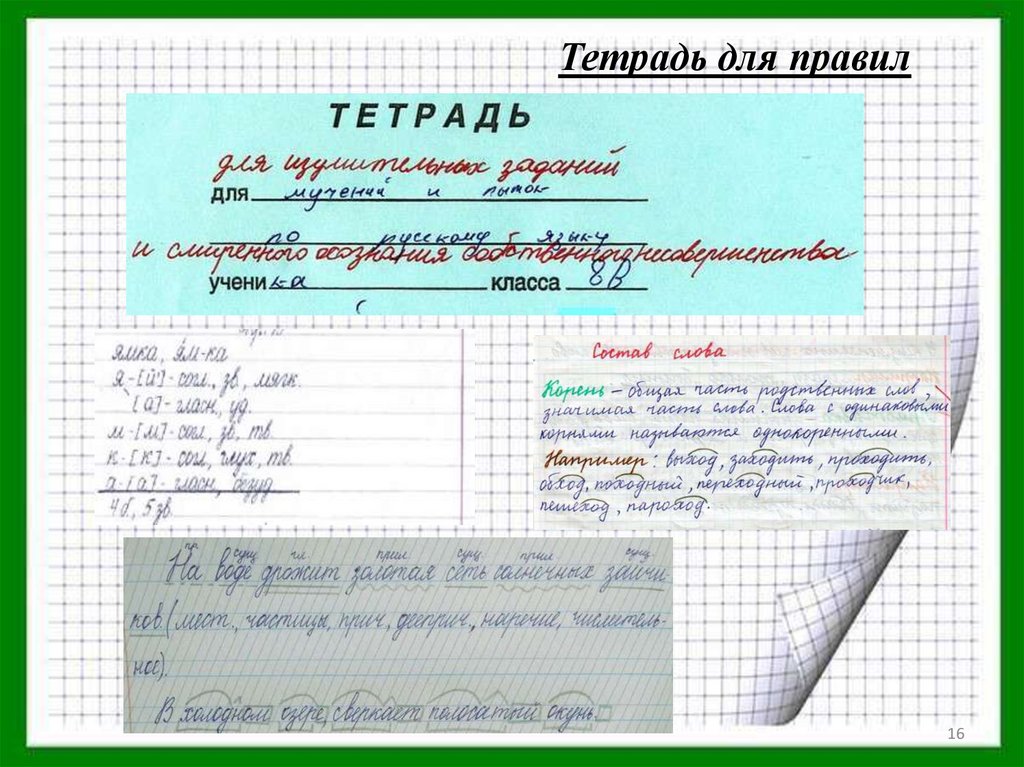 Тетрадь для правил
ТЕТРАДЬ
для изумительных заданий
для мучений и пыток
по русскому языку
и смиренного осознания собственного несовершенства
учени ка класса 8В
ямка, я́м-ка
я-[й']-согл., зв., мягк.
[а]-гласн., уд.
м-[м]-согл., зв., тв.
к-[к]-согл., глух., тв.
а-[а]-гласн., безуд.
4 б., 5 зв.
Состав слова
Корень – общая часть родственных слов,
значимая часть слова. Слова с одинаковыми
корнями называются однокоренными.
Например: выход, заходить, проходить,
обход, походный, переходный, проходчик,
пешеход, пароход.
пр. сущ. гл. прил. сущ. прил. сущ.
На воде дрожит золотая сеть солнечных зайчи-
ков. (мест., частицы, прич., дееприч., наречие, числитель-
ное).
В холодном озере сверкает полосатый окунь.
16